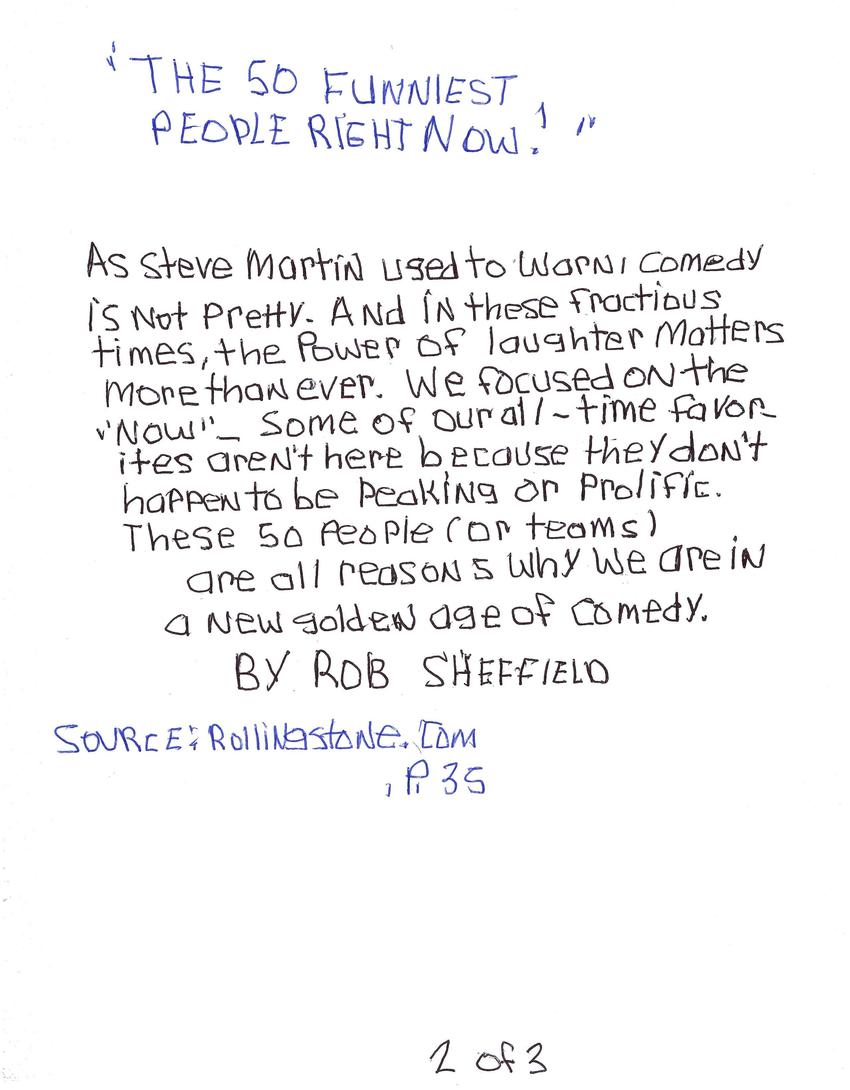 "THE 50 FUNNIEST
PEOPLE RIGHT NOW!"
As Steve Martin used to warn, comedy
is Not Pretty. And in these fractious
times, the Power of laughter Matters
more than ever. We focused on the
"Now" - Some of our all-time favor-
ites aren't here because they don't
happen to be Peaking or Prolific.
These 50 People (or teams)
are all reasons why we are in
a New golden age of comedy.
BY ROB SHEFFIELD
SOURCE: Rollingstone.Com
, P. 35
2 of 3